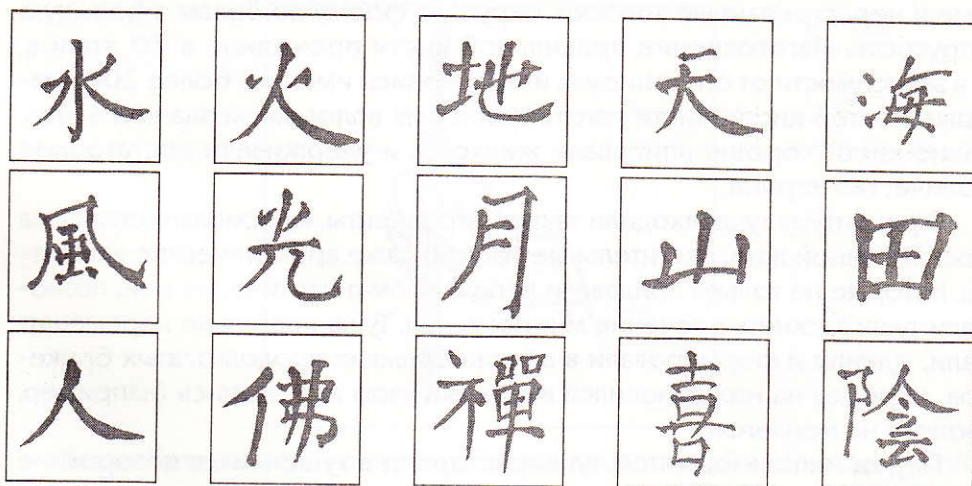 水 火 地 天 海
風 光 月 山 田
人 佛 禪 喜 陰